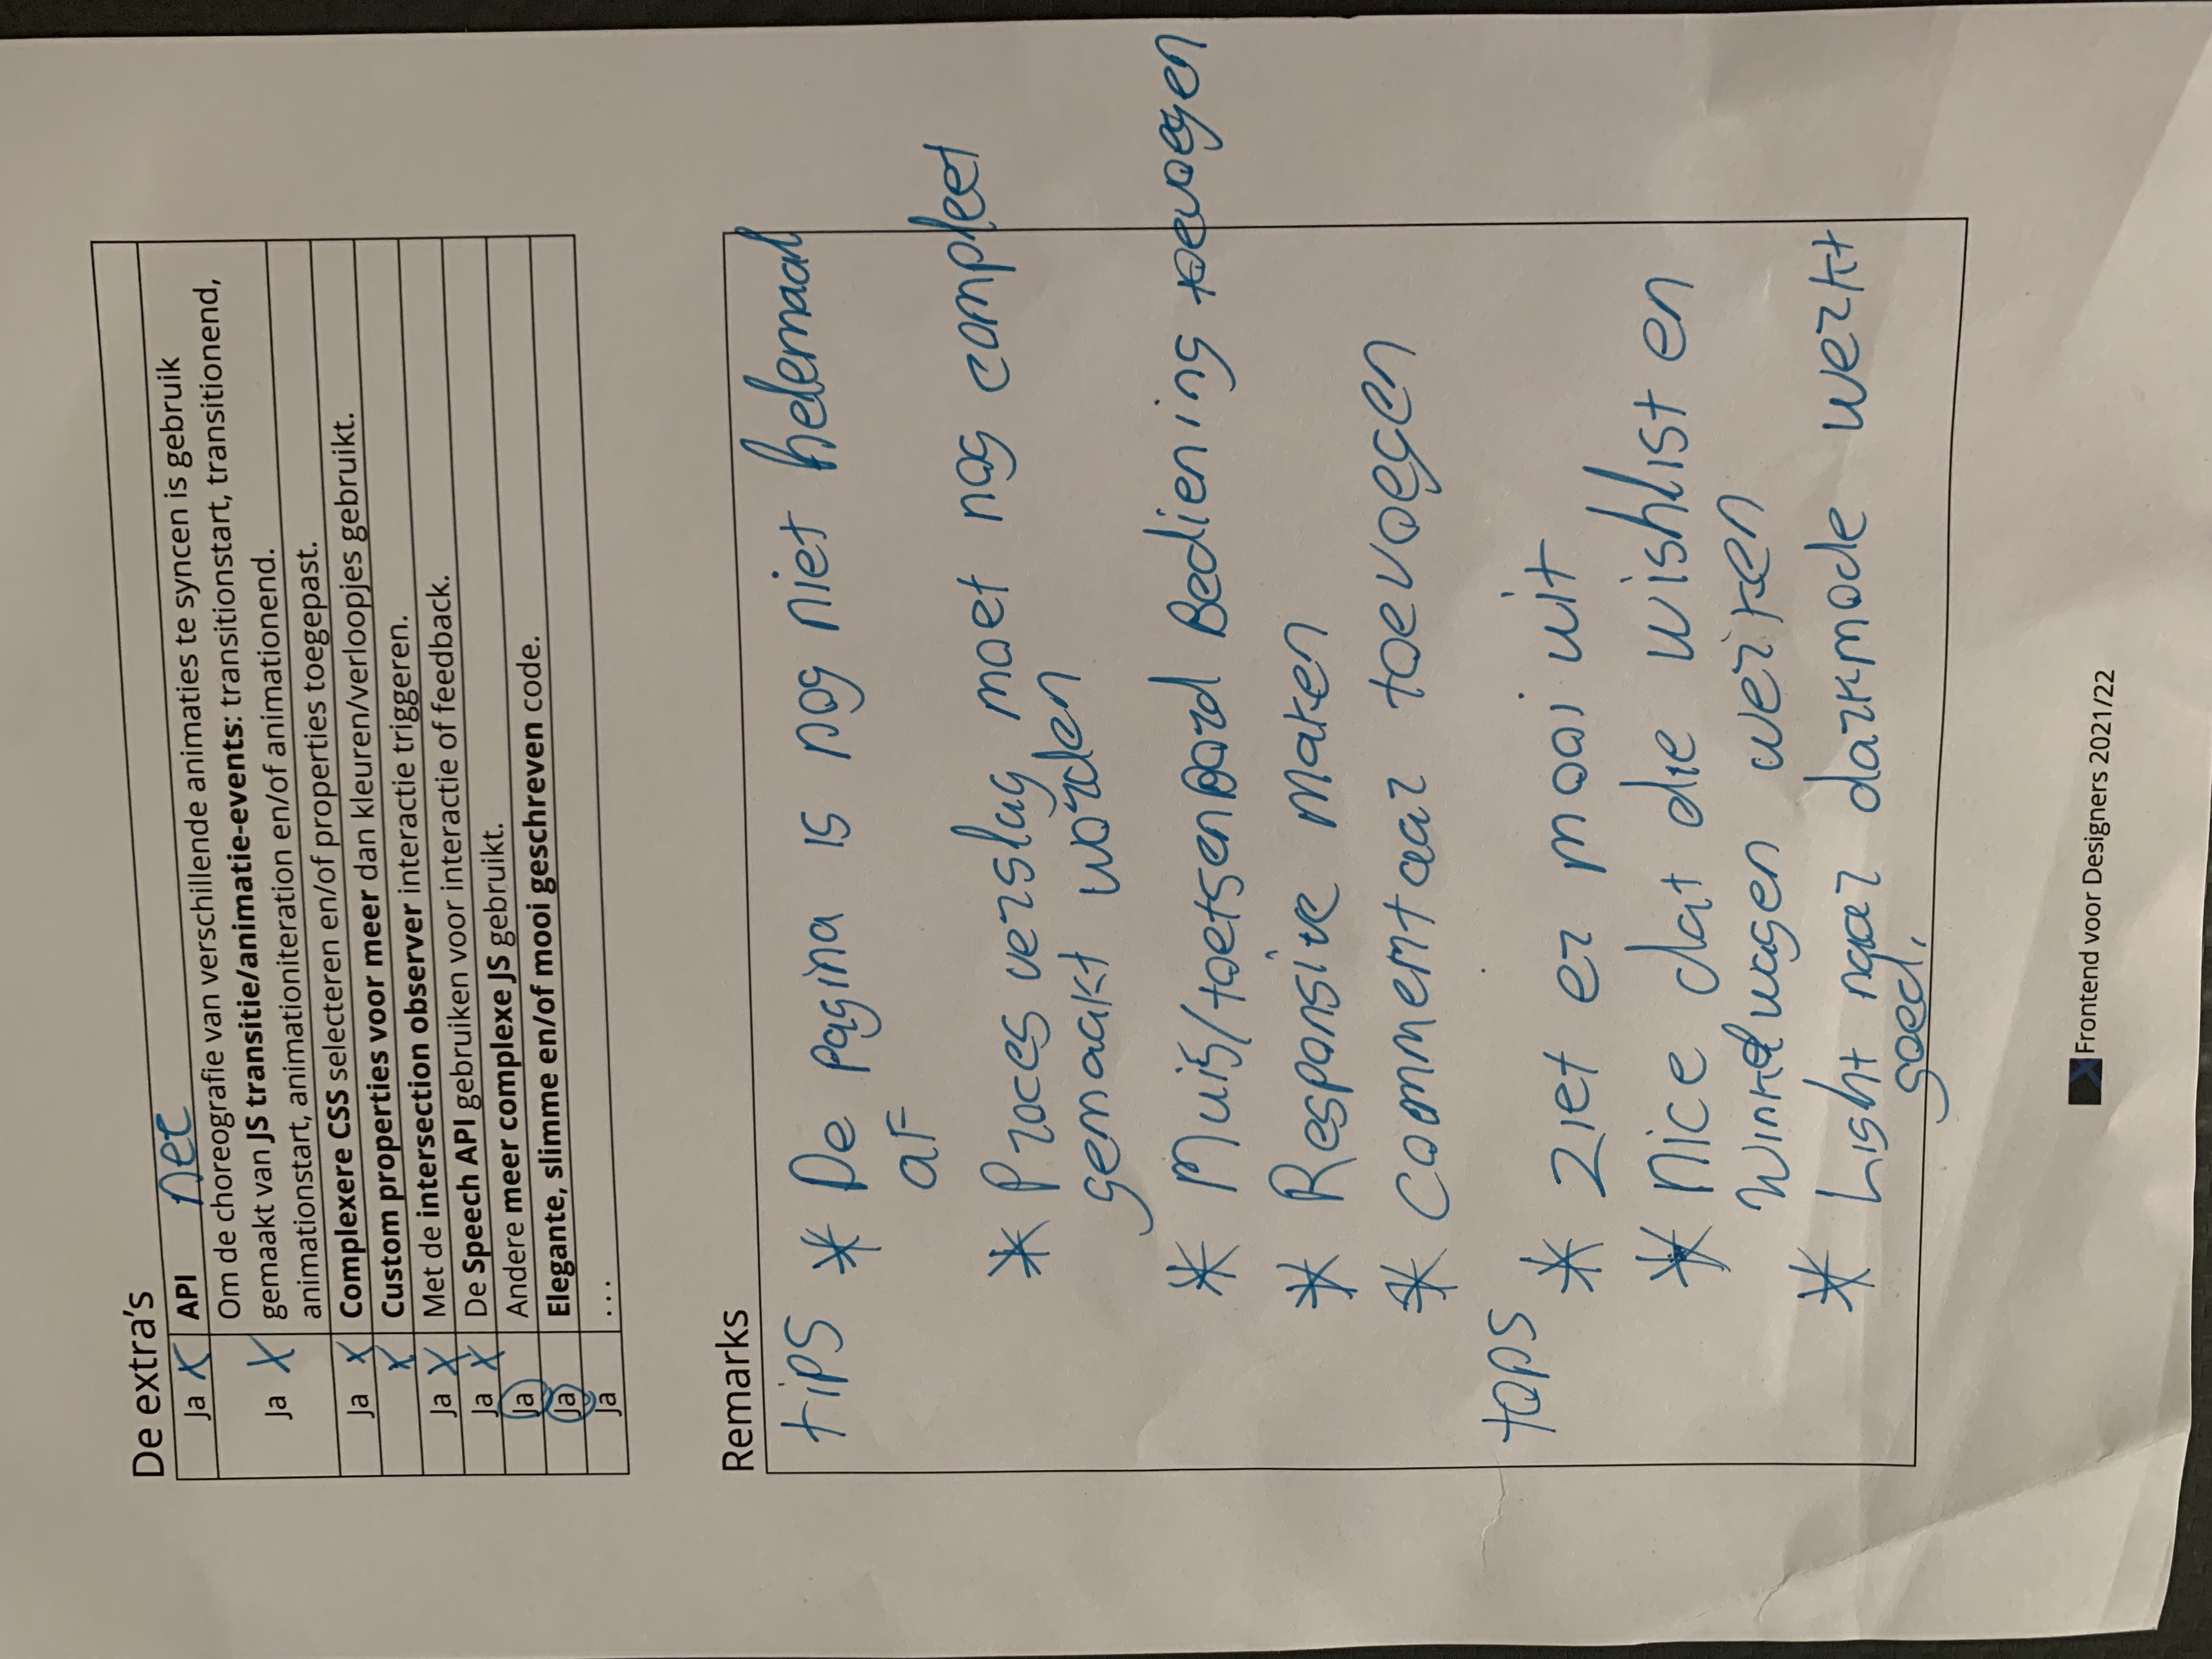 De extra's
Ja X API nee
Om de choreografie van verschillende animaties te syncen is gebruik
Ja X gemaakt van JS transitie/animatie-events: transitionstart, transitionend,
animationstart, animationiteration en/of animationend.
Ja X Complexere CSS selecteren en/of properties toegepast.
X Custom properties voor meer dan kleuren/verloopjes gebruikt.
Ja X Met de intersection observer interactie triggeren.
Ja X De Speech API gebruiken voor interactie of feedback.
Ja Andere meer complexe JS gebruikt.
Ja Elegante, slimme en/of mooi geschreven code.
Ja ...
Remarks
tips * De pagina is nog niet helemaal
af
* Proces verslag moet nog compleet
gemaakt worden
* Muis/toetsenbord Bediening toevoegen
* Responsive maken
* Commentaar toevoegen
tops
* Ziet er mooi uit
* nice dat die wishlist en
winkelwagen werken
* Light naar darkmode werkt
goed.
Frontend voor Designers 2021/22